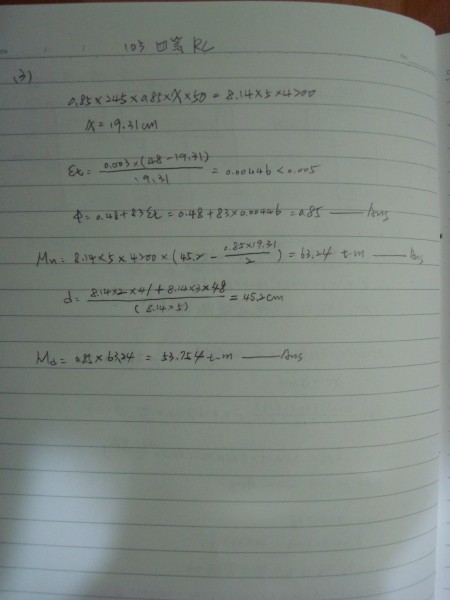 103 四等 RC
(3)
0.85×245×0.85×X×50 = 8.14×5×4200
X = 19.31 cm
εt = 0.003×(48-19.31) / 19.31 = 0.00446 < 0.005
φ = 0.48+83εt = 0.48+83×0.00446 = 0.85 —— Ans
Mn = 8.14×5×4200×(45.2 - 0.85×19.31 / 2) = 63.24 t-m —— Ans
d = 8.14×2×41+8.14×3×48 / (8.14×5) = 45.2 cm
Md = 0.85×63.24 = 53.754 t-m —— Ans